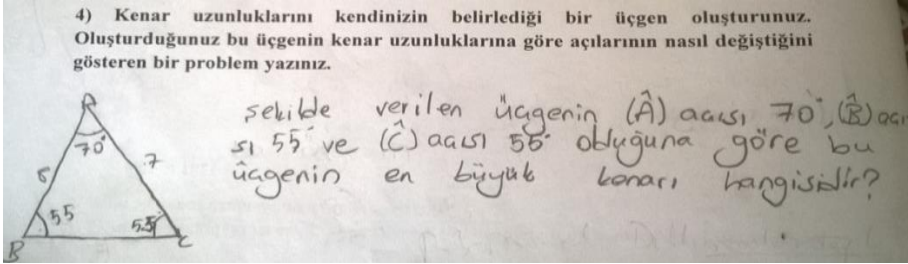 4) Kenar uzunluklarını kendinizin belirlediği bir üçgen oluşturunuz.
Oluşturduğunuz bu üçgenin kenar uzunluklarına göre açılarının nasıl değiştiğini
gösteren bir problem yazınız.
şekilde verilen üçgenin (Â) açısı 70°, (B̂) açı
sı 55° ve (Ĉ) açısı 55° olduğuna göre bu
üçgenin en büyük kenarı hangisidir?
A
70°
6 7
55 55
B C